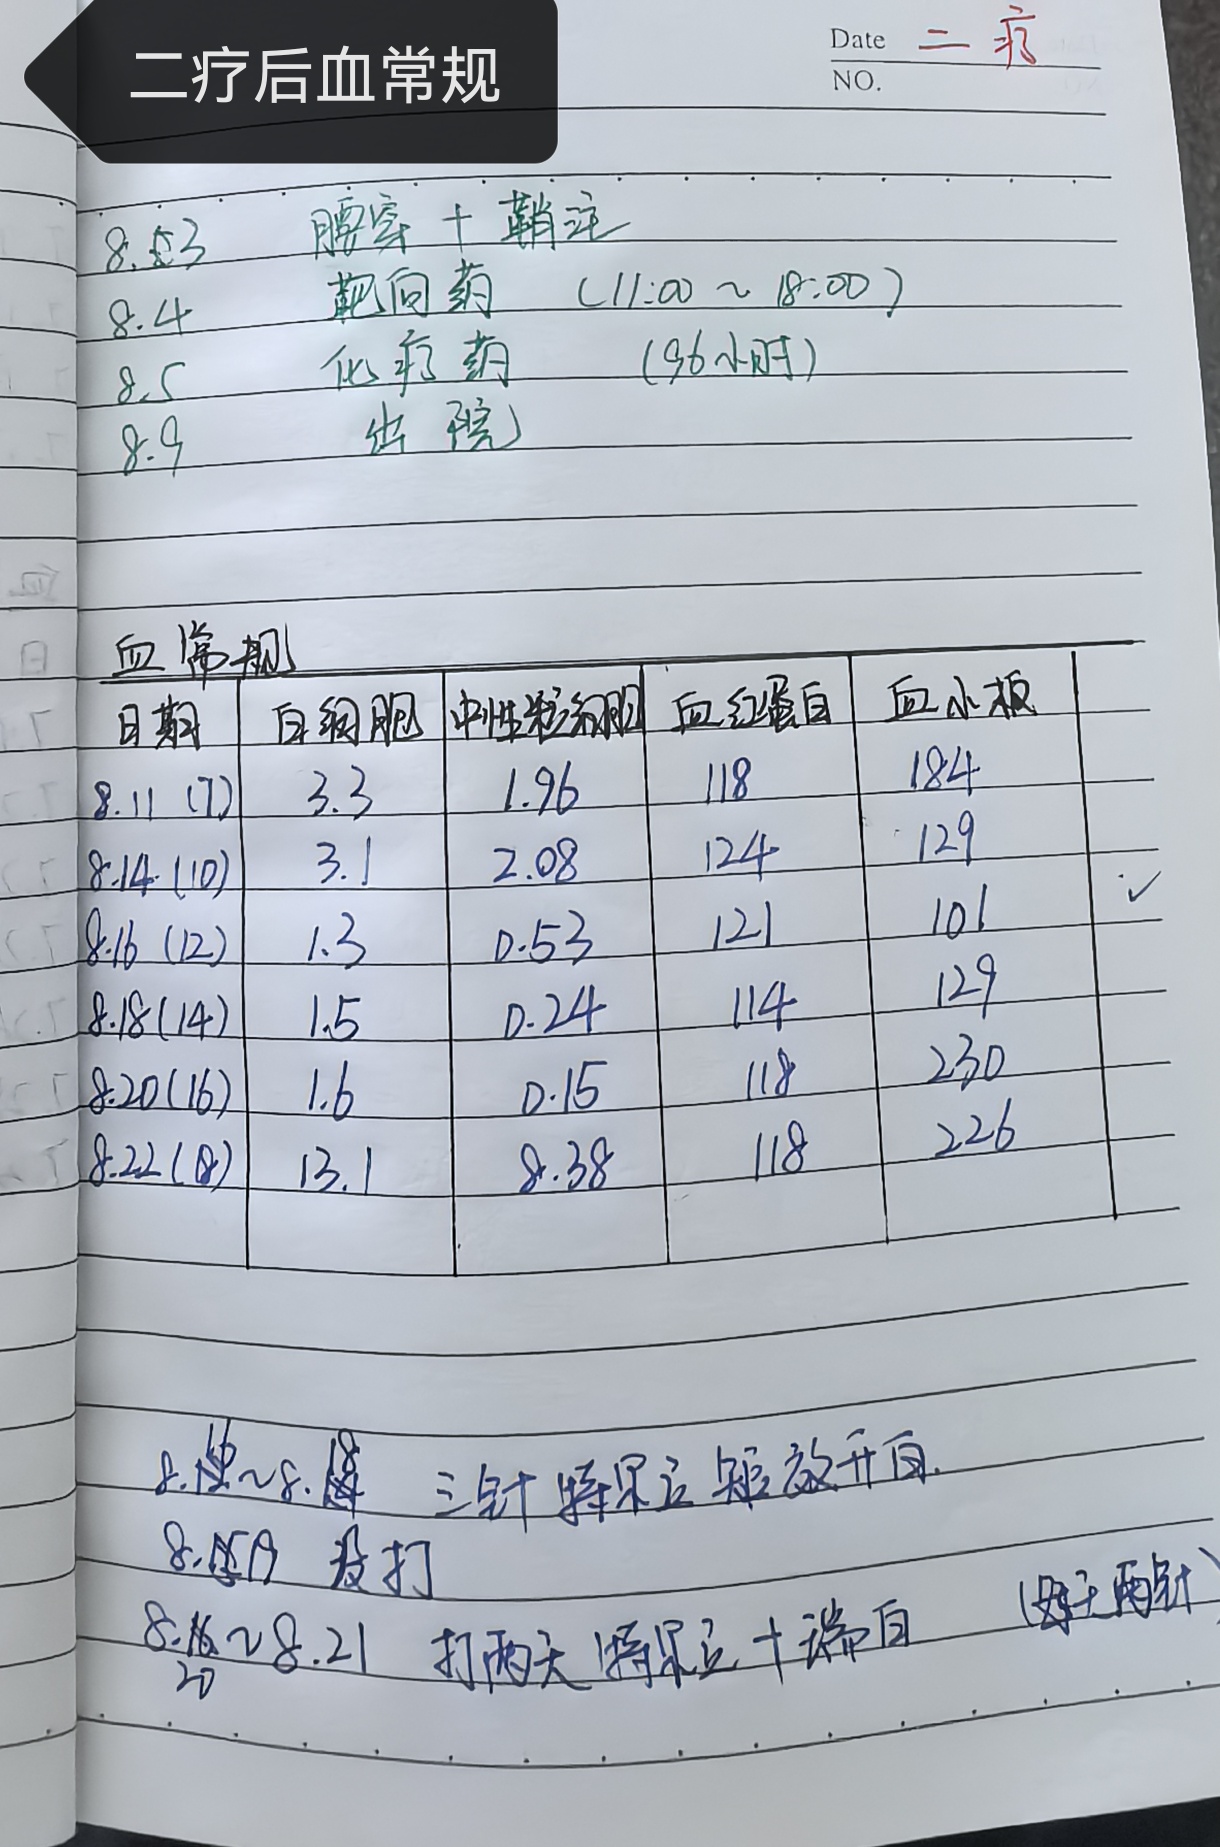 二疗后血常规
Date 二疗
NO.
8.3 腰穿+鞘注
8.4 靶向药 (11:00~18:00)
8.5 化疗药 (96小时)
8.9 出院
血常规
日期 白细胞 中性粒细胞 血红蛋白 血小板
8.11 (7) 3.3 1.96 118 184
8.14 (10) 3.1 2.08 124 129
8.16 (12) 1.3 0.53 121 101 ✓
8.18 (14) 1.5 0.24 114 129
8.20 (16) 1.6 0.15 118 230
8.22 (18) 13.1 8.38 118 226
8.16~8.18 三针特尔立短效升白.
8.19 没打
8.20~8.21 打两天特尔立+瑞白 (每天两针)